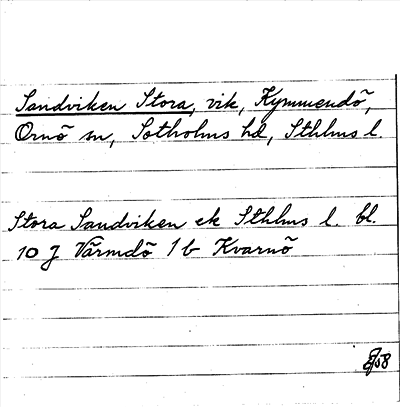 Sandviken Stora, vik, Kymmendö,
Ornö sn, Sotholms hd, Sthlms l.
Stora Sandviken ek Sthlms l. bl.
10 J Värmdö 1 b Kvarnö